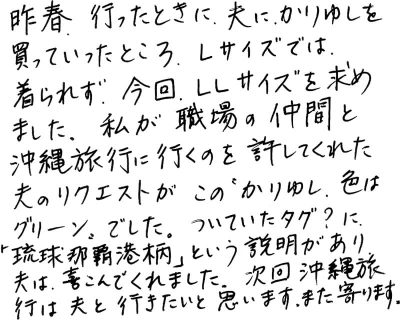 昨春、行ったときに、夫に、かりゆしを
買っていったところ、Lサイズでは、
着られず、今回、LLサイズを求め
ました。私が職場の仲間と
沖縄旅行に行くのを許してくれた
夫のリクエストがこの“かりゆし、色は
グリーン”でした。ついていたタグ?に、
「琉球那覇港柄」という説明があり
夫は、喜こんでくれました。次回沖縄旅
行は夫と行きたいと思います。また寄ります。